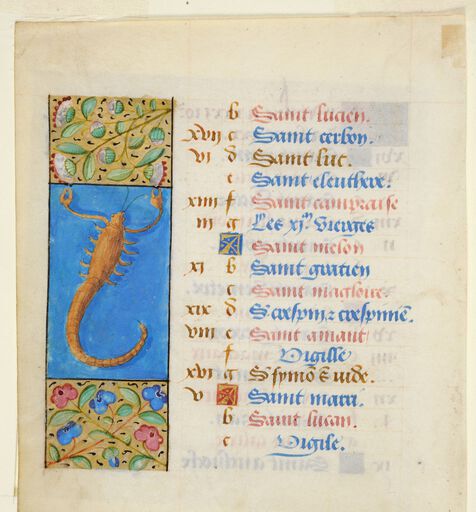 b Saint lucien.
xvii c Saint cerbon.
vi d Saint luc.
e Saint eleuthere.
xiiii f Saint capraise
iii g Les xi.m vierges
A Saint melon
xi b Saint gratien
Saint magloire.
xix d S crespin z crespinie.
viii e Saint amant
f Vigille
xvi g S symo & iude.
v A Saint marci.
b Saint lucan.
c Vigile.